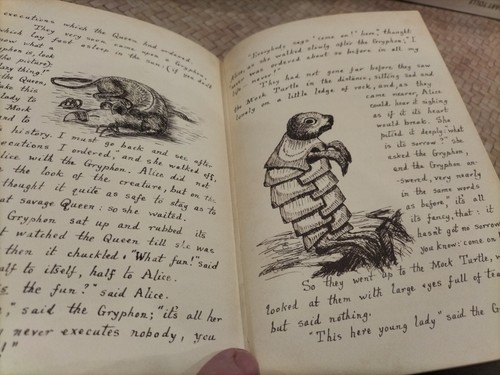 executions which the Queen had ordered.
They very soon came upon a Gryphon,
which lay fast asleep in the sun: (if you don't
know what a
Gryphon is, look
the picture):
lazy thing!"
the Queen,
take this
lady to
Mock
and to
history. I must go back and see after
executions I ordered, and she walked off,
Alice with the Gryphon. Alice did not
the look of the creature, but on the
thought it quite as safe to stay as to
that savage Queen: so she waited.
Gryphon sat up and rubbed its
watched the Queen till she was
then it chuckled. "What fun!" said
half to itself, half to Alice.
is the fun?" said Alice.
," said the Gryphon; "it's all her
never executes nobody, you
!"
"Everybody says 'come on!' here," thought
Alice, as she walked slowly after the Gryphon; "I
never was ordered about so before in all my
life - never!"
They had not gone far before they saw
the Mock Turtle in the distance, sitting sad and
lonely on a little ledge of rock, and, as they
came nearer, Alice
could hear it sighing
as if its heart
would break. She
pitied it deeply: "what
is its sorrow?" she
asked the Gryphon,
and the Gryphon an-
-swered, very nearly
in the same words
as before, "it's all
its fancy, that: it
hasn't got no sorrow,
you know: come on!"
So they went up to the Mock Turtle, w
looked at them with large eyes full of tears,
but said nothing.
"This here young lady" said the G